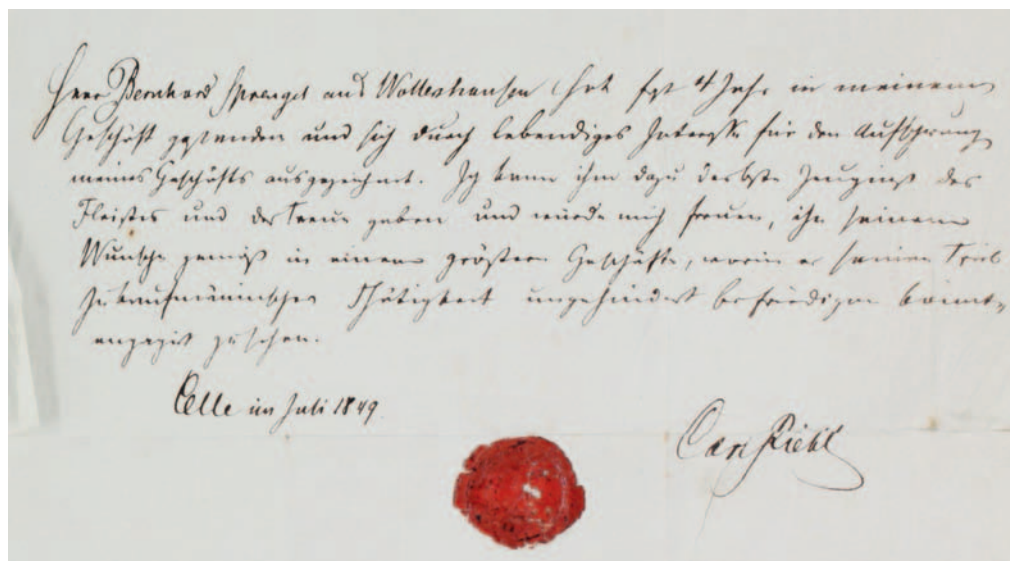 Herr Bernhard Sprengel aus Wollershausen hat fast 4 Jahr in meinem
Geschäft gestanden und sich durch lebendiges Interesse für den Aufschwung
meines Geschäfts ausgezeichnet. Ich kann ihm dazu das beste Zeugniß des
Fleißes und der Treue geben und würde mich freuen, ihn seinem
Wunsche gemäß in einem größern Geschäfte, worin er seinen Trieb
zu kaufmännischer Thätigkeit ungehindert befriedigen könnte,
engagirt zu sehen.
Celle im Juli 1849
Carl Riehl